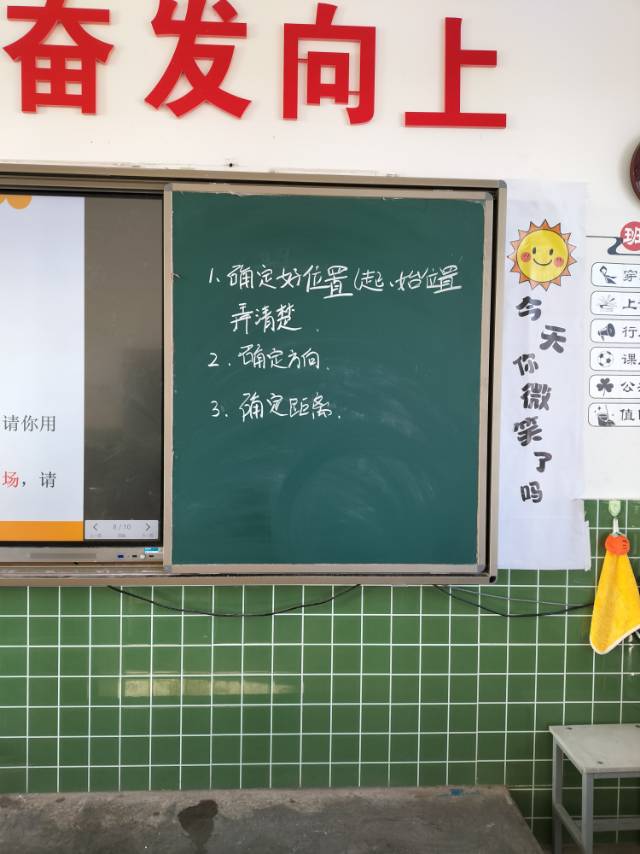 奋发向上
1、确定好位置(起、始位置
弄清楚.
2. 确定方向.
3. 确定距离.
请你用
场，请
8 / 10
今天你微笑了吗
班
穿
上
行
课
公
值